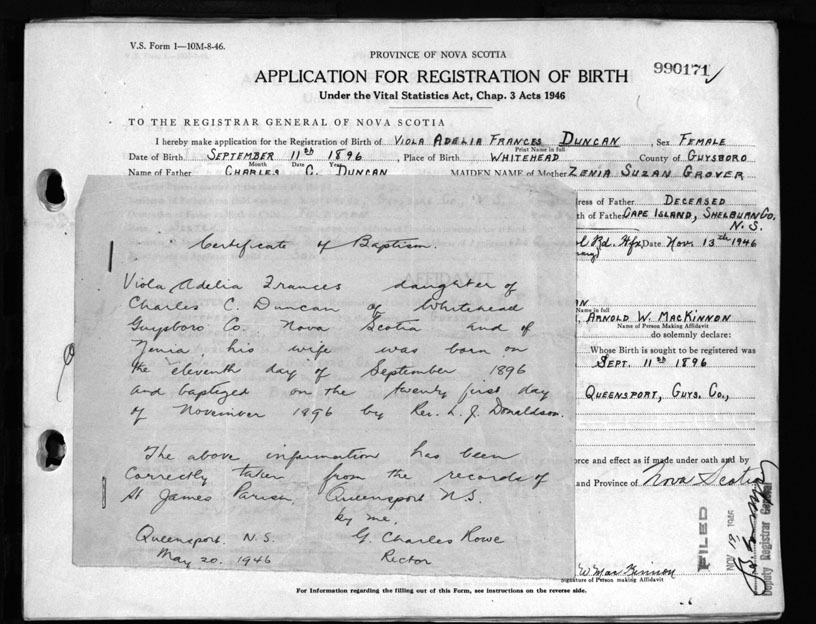 V.S. Form 1—10M-8-46.
PROVINCE OF NOVA SCOTIA
APPLICATION FOR REGISTRATION OF BIRTH
990171
Under the Vital Statistics Act, Chap. 3 Acts 1946
TO THE REGISTRAR GENERAL OF NOVA SCOTIA
I hereby make application for the Registration of Birth of VIOLA ADELIA FRANCES DUNCAN, Sex FEMALE
Print Name in full
Date of Birth SEPTEMBER 11th 1896, Place of Birth WHITEHEAD County of GUYSBORO
Month Date Year
Name of Father CHARLES C. DUNCAN MAIDEN NAME of Mother ZENIA SUZAN GROVER
ress of Father DECEASED
th of Father CAPE ISLAND, SHELBURN CO.
N. S.
Rd. Hfx Date Nov. 13th 1946
Certificate of Baptism.
Viola Adelia Frances daughter of
Charles C. Duncan of Whitehead
Guysboro Co. Nova Scotia and of
Zenia, his wife was born on
the eleventh day of September 1896
and baptized on the twenty first day
of November 1896 by Rev. L. J. Donaldson.
The above information has been
correctly taken from the records of
St James Parish, Queensport N.S.
by me,
Queensport, N.S. G. Charles Rowe
May 20, 1946 Rector
Name in full
ARNOLD W. MACKINNON
Name of Person Making Affidavit
do solemnly declare:
Whose Birth is sought to be registered was
SEPT. 11th 1896
QUEENSPORT, GUYS. CO.,
orce and effect as if made under oath and by
and Province of Nova Scotia
FILED
NOV 19 1946
Deputy Registrar General
W. MacKinnon
Signature of Person making Affidavit
For Information regarding the filling out of this Form, see instructions on the reverse side.